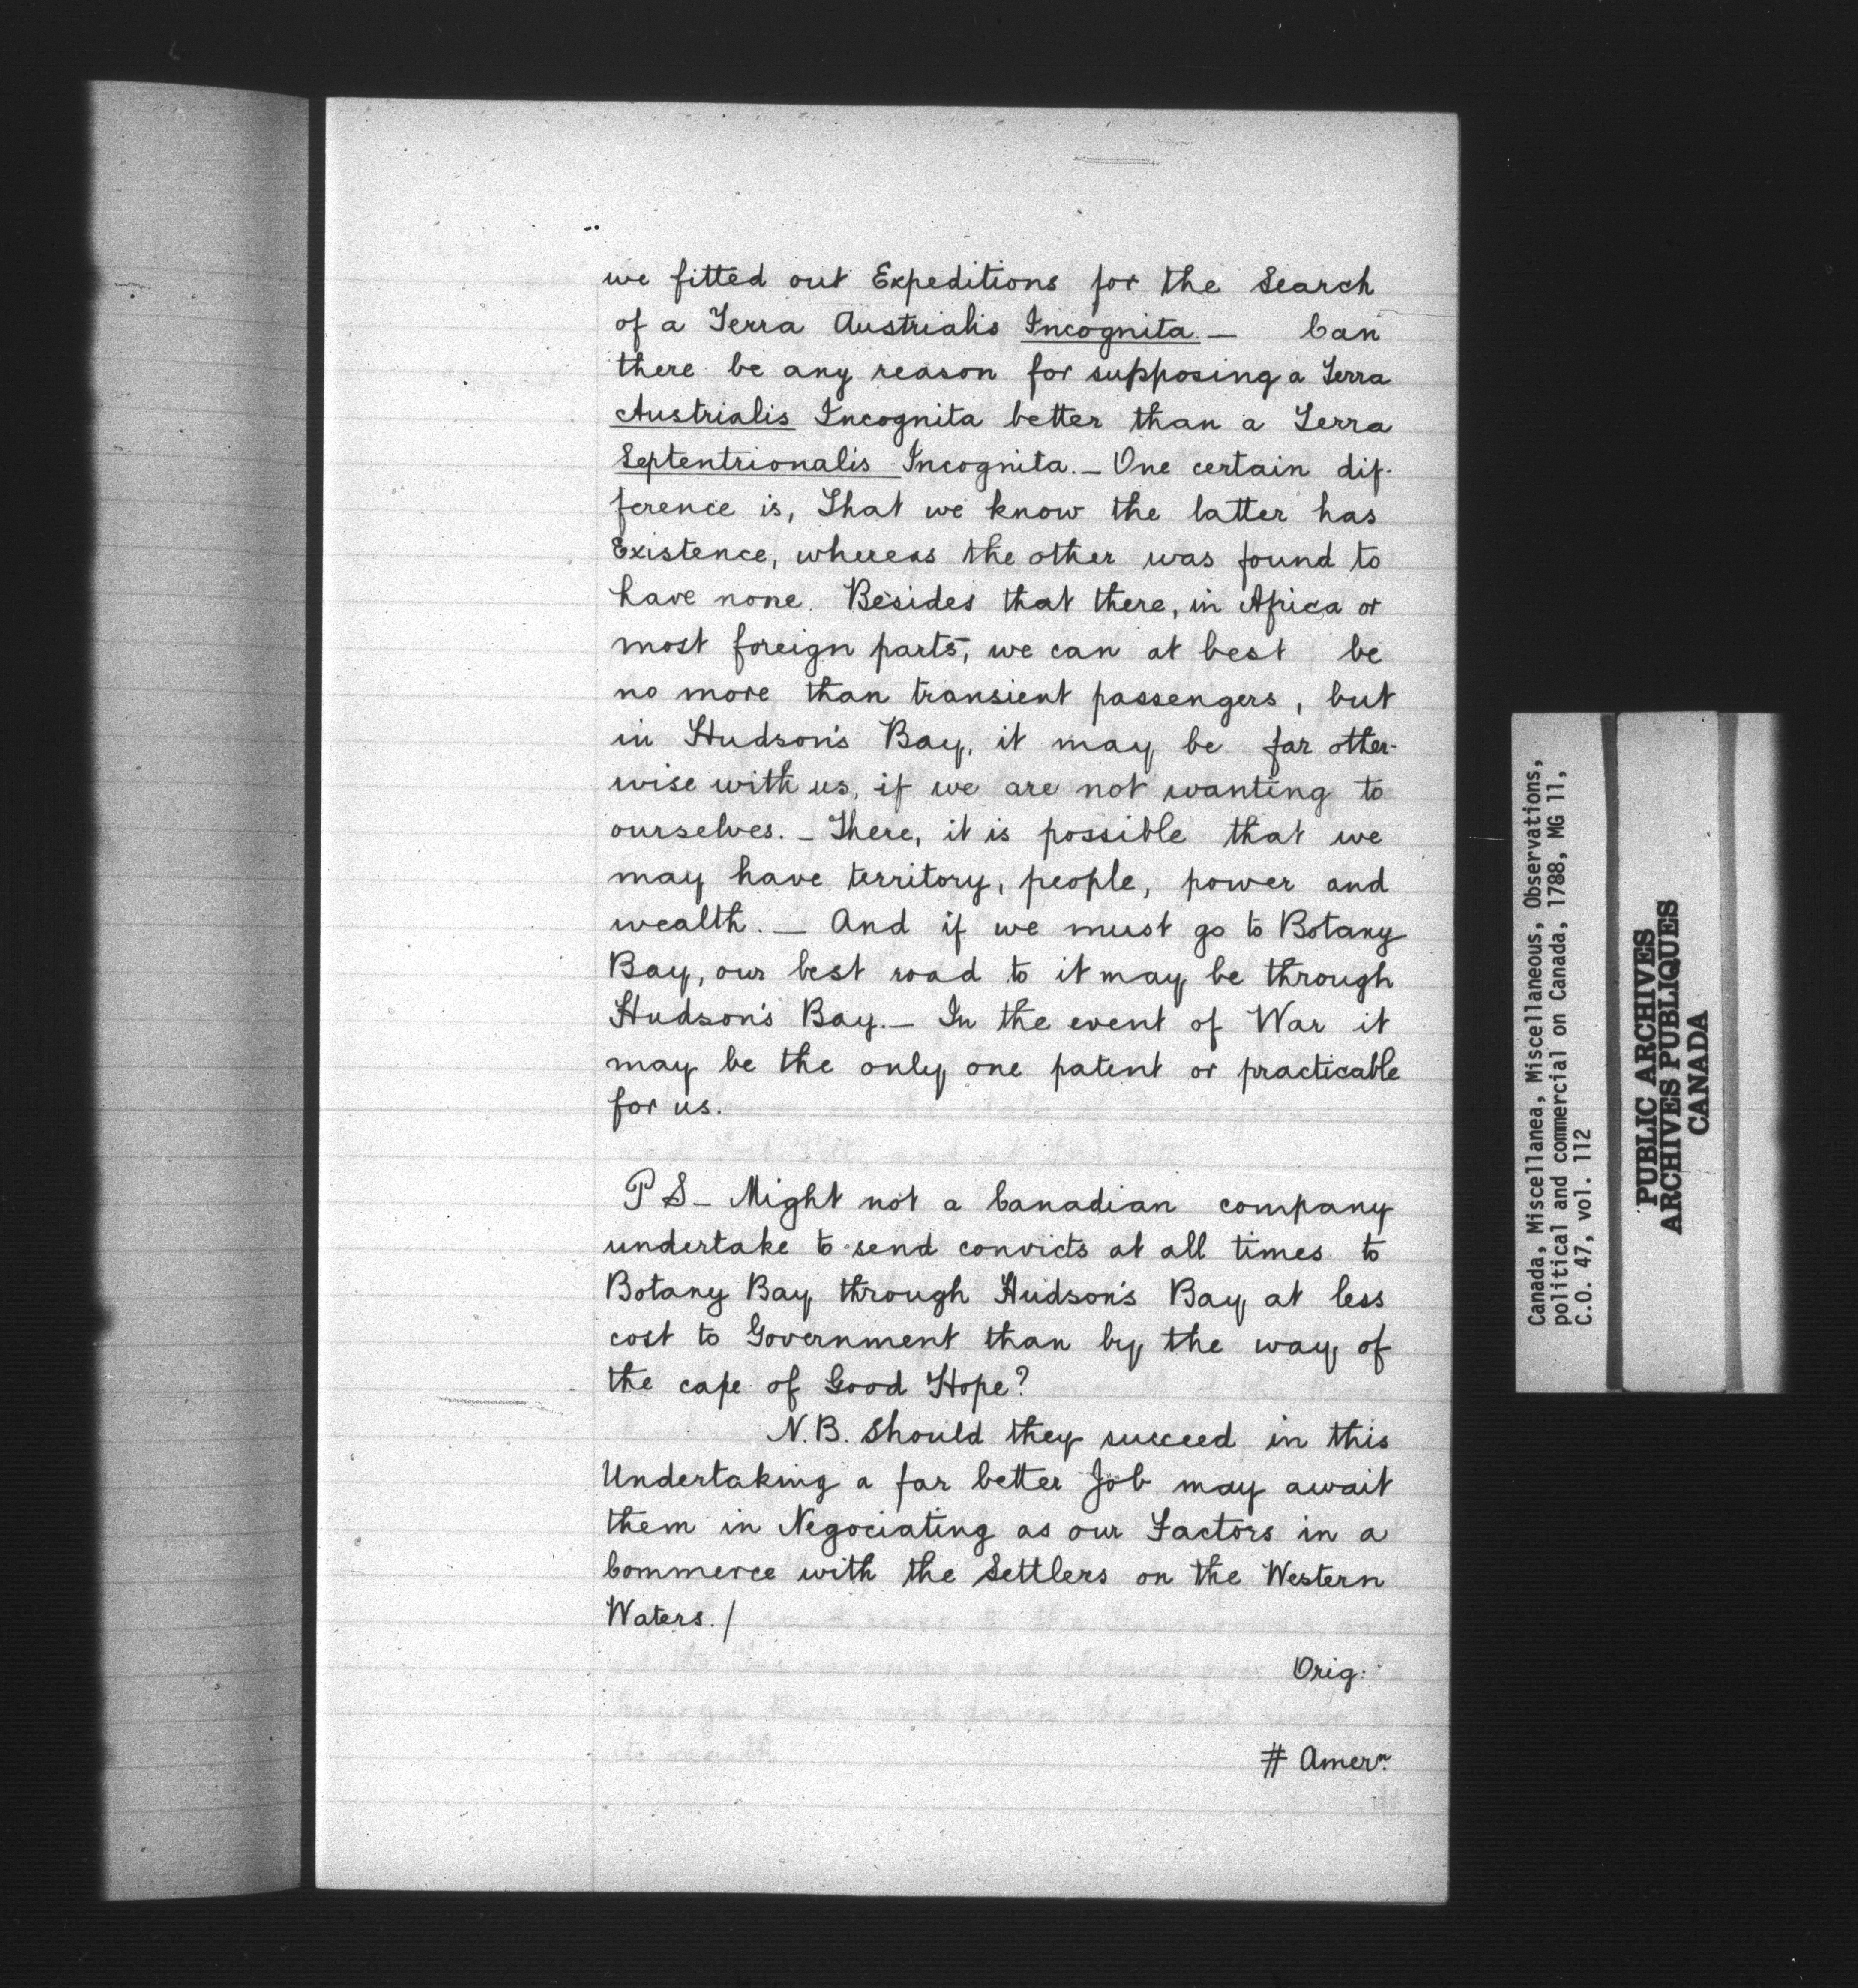 we fitted out Expeditions for the Search
of a Terra Austrialis Incognita. — Can
there be any reason for supposing a Terra
Austrialis Incognita better than a Terra
Septentrionalis Incognita. — One certain dif-
ference is, That we know the latter has
Existence, whereas the other was found to
have none. Besides that there, in Africa or
most foreign parts, we can at best be
no more than transient passengers, but
in Hudson's Bay, it may be far other-
wise with us, if we are not wanting to
ourselves. — There, it is possible that we
may have territory, people, power and
wealth. — And if we must go to Botany
Bay, our best road to it may be through
Hudson's Bay. — In the event of War it
may be the only one patent or practicable
for us.
P S — Might not a Canadian company
undertake to send convicts at all times to
Botany Bay through Hudson's Bay at less
cost to Government than by the way of
the cape of Good Hope?
N.B. Should they succeed in this
Undertaking a far better Job may await
them in Negociating as our Factors in a
Commerce with the Settlers on the Western
Waters. /
Orig:
# Amern.
Canada, Miscellanea, Miscellaneous, Observations,
political and commercial on Canada, 1788, MG 11,
C.O. 47, vol. 112
PUBLIC ARCHIVES
ARCHIVES PUBLIQUES
CANADA